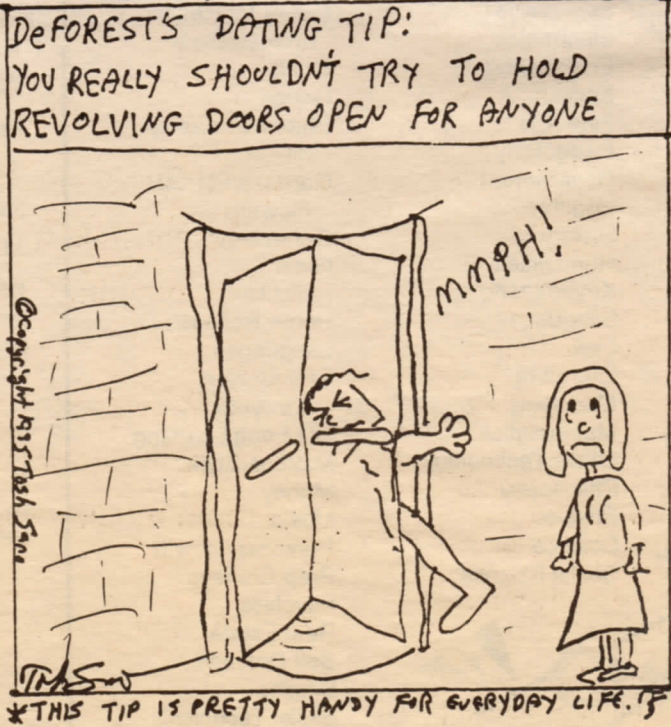 DeFOREST'S DATING TIP:
YOU REALLY SHOULDN'T TRY TO HOLD
REVOLVING DOORS OPEN FOR ANYONE
MMPH!
©Copyright 1995 Tosh Sano
*THIS TIP IS PRETTY HANDY FOR EVERYDAY LIFE.